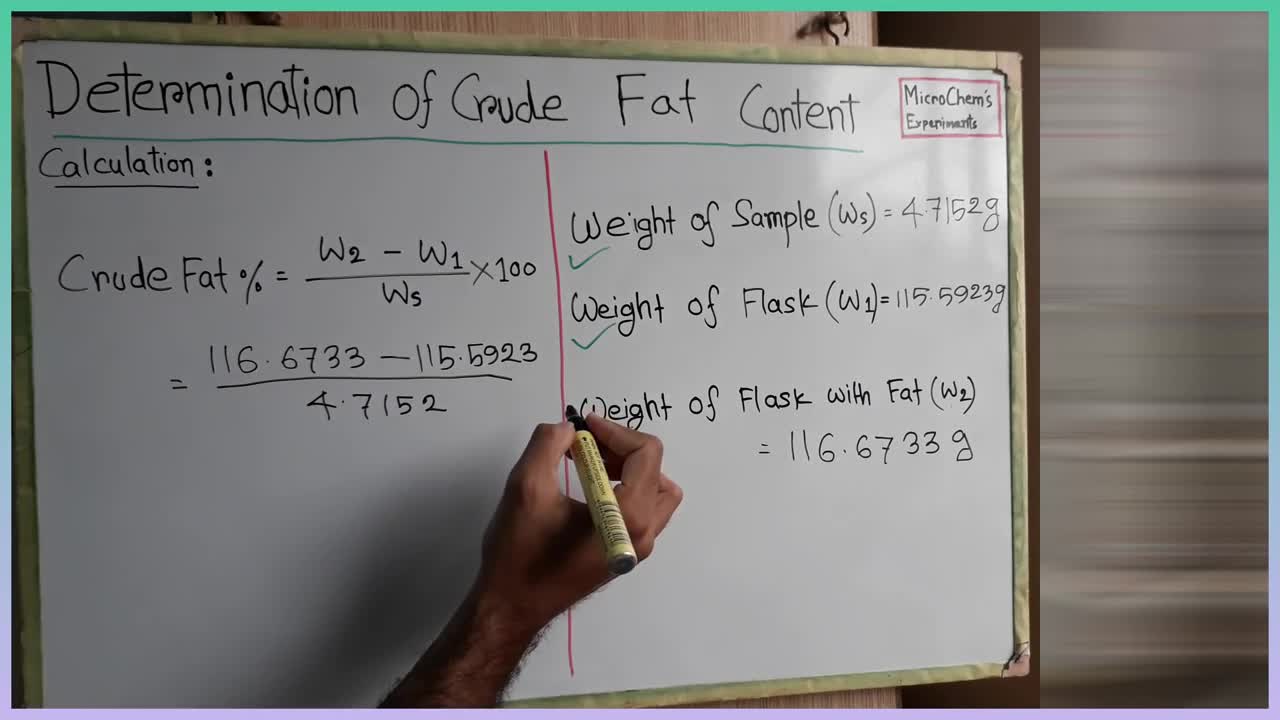 Determination of Crude Fat Content
MicroChem's
Experiments
Calculation:
Crude Fat % = W2 - W1 / Ws × 100
= 116.6733 - 115.5923 / 4.7152
Weight of Sample (Ws) = 4.7152g
Weight of Flask (W1) = 115.5923g
Weight of Flask with Fat (W2)
= 116.6733 g